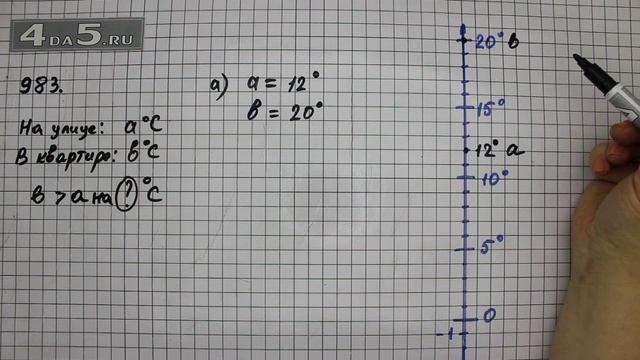 4DA5.RU
983.
На улице: a°C
В квартире: в°C
в > a на ? °C
а) a = 12°
в = 20°
20° в
15°
12° a
10°
5°
0
-1